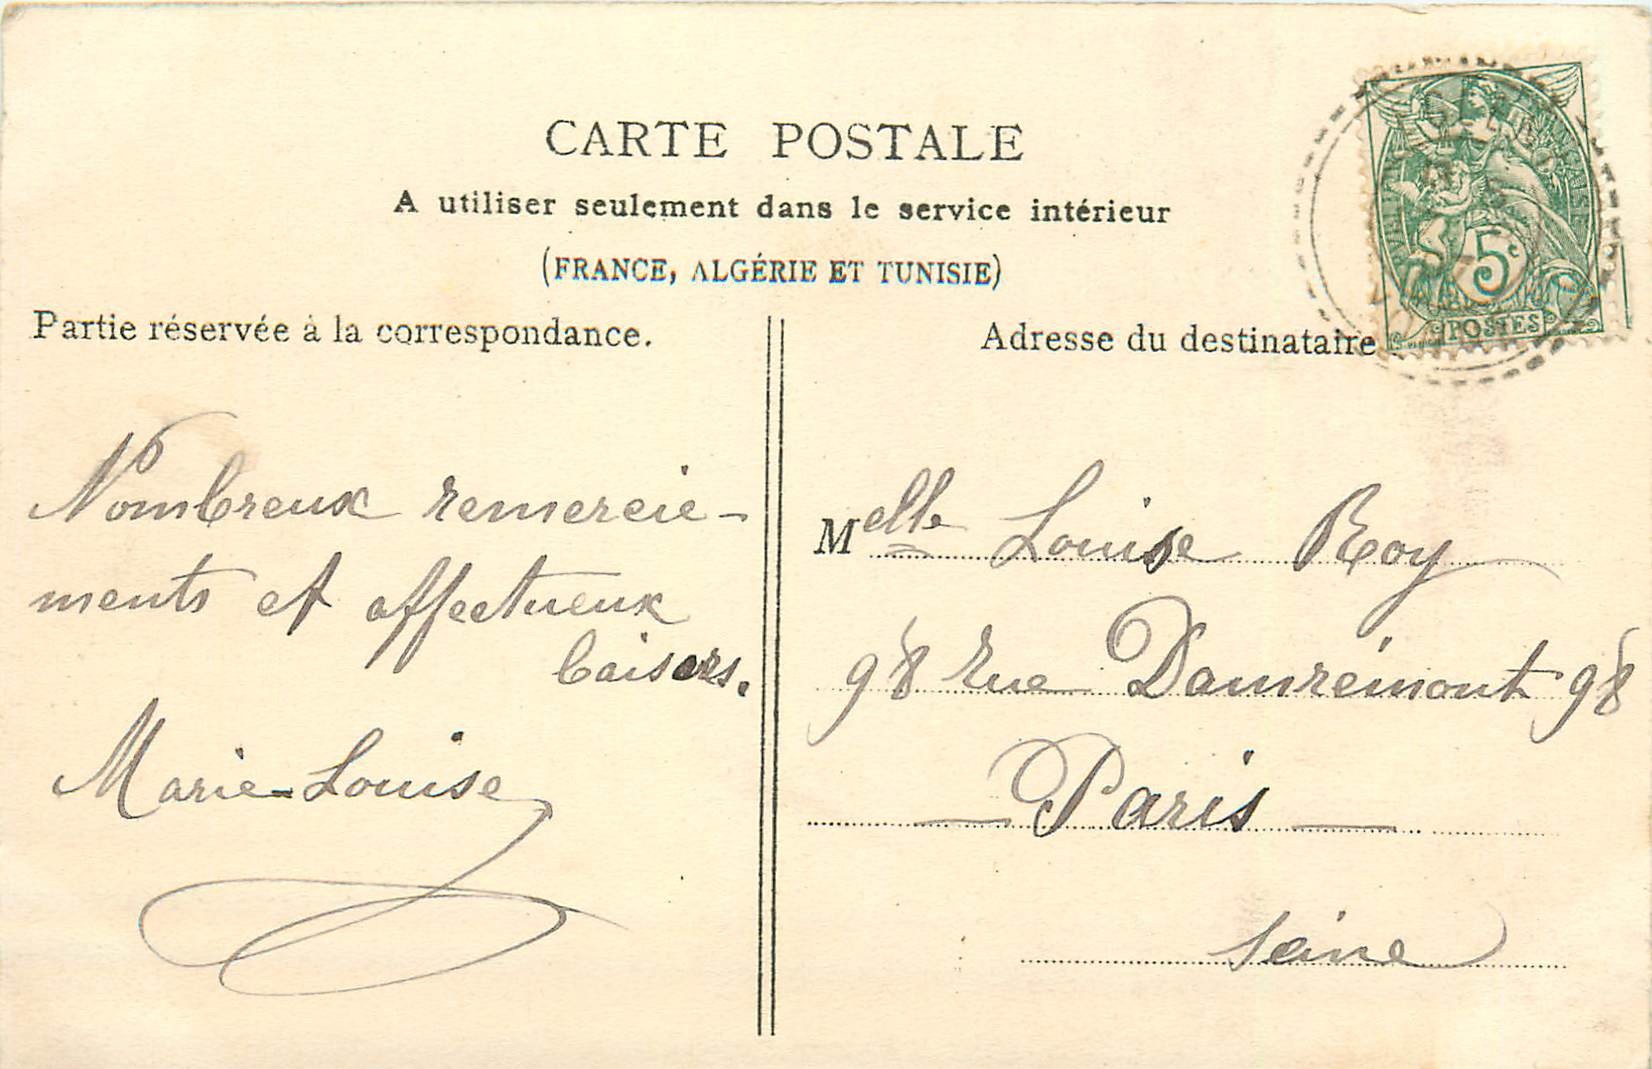 CARTE POSTALE
A utiliser seulement dans le service intérieur
(FRANCE, ALGÉRIE ET TUNISIE)
Partie réservée à la correspondance.
Adresse du destinataire
5c
POSTES
Nombreux remercie-
ments et affectueux
baisers.
Marie-Louise
Melle Louise Roy
98 rue Damrémont 98
Paris
Seine